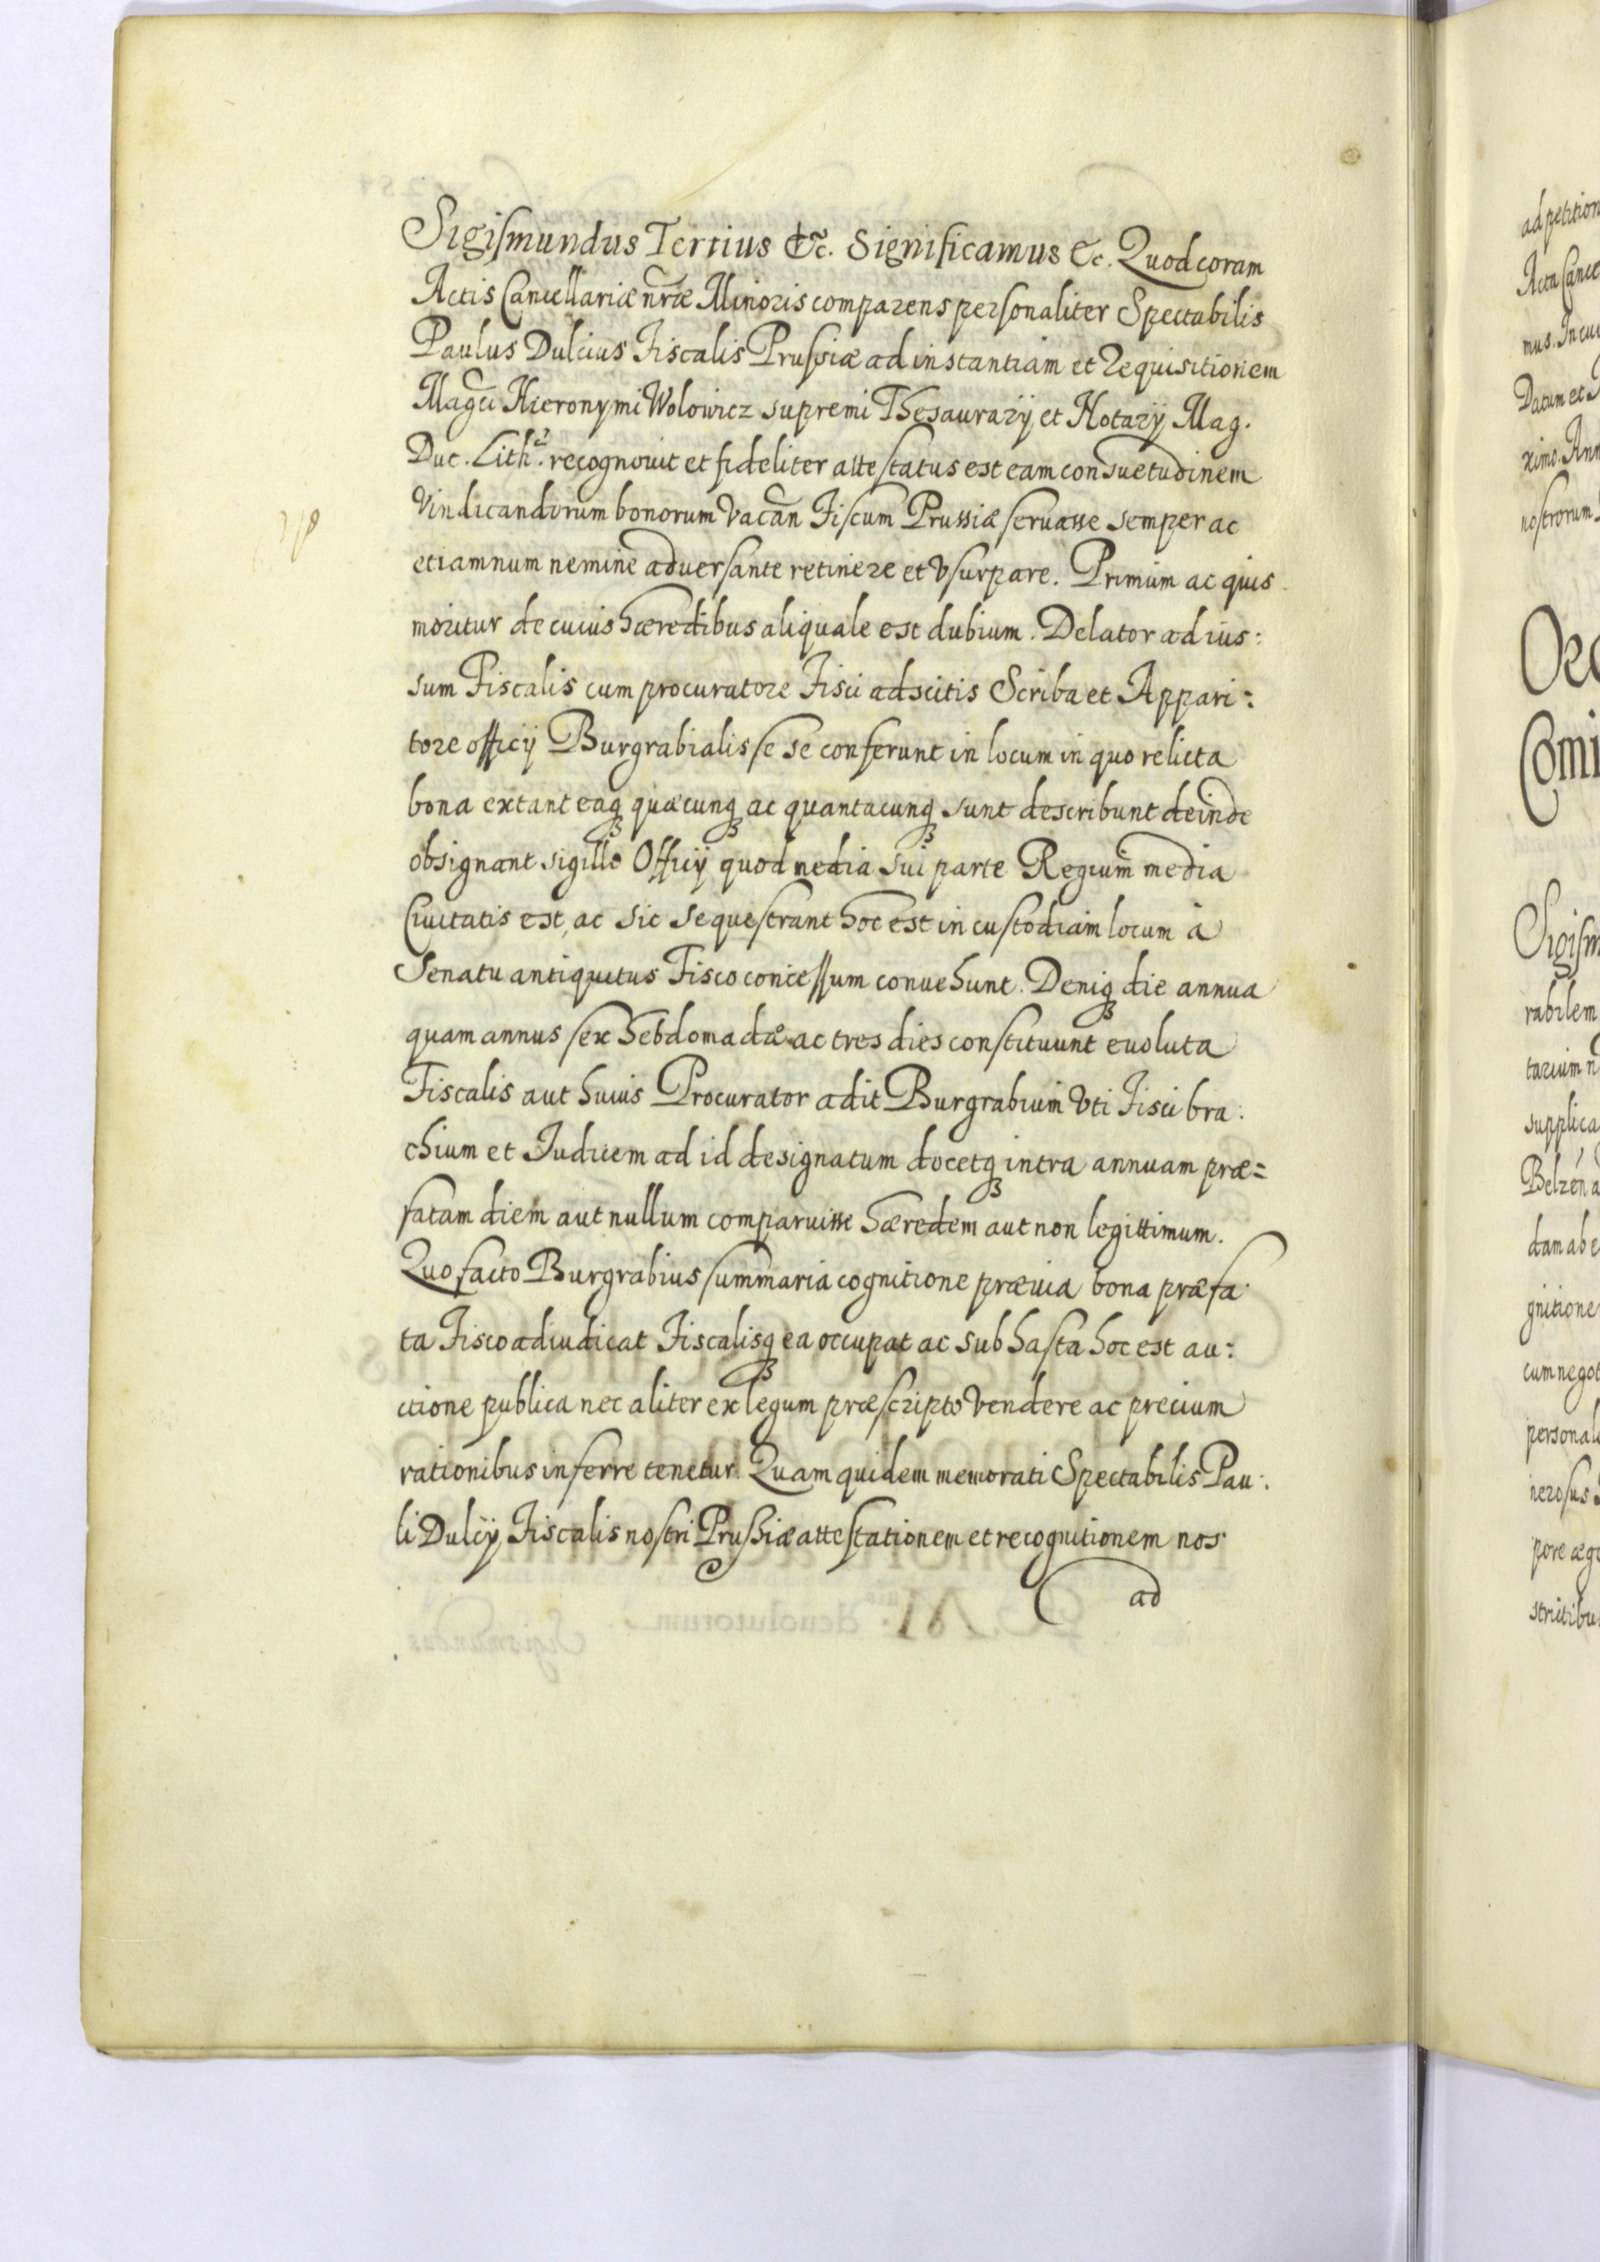 Sigismundus Tertius &c. Significamus &c. Quod coram
Actis Cancellariæ nr̃æ Minoris comparens personaliter Spectabilis
Paulus Dulcius Fiscalis Prussiæ ad instantiam et requisitionem
Magci Hieronymi Wolowicz supremi Thesaurarÿ et Notarÿ Mag.
Duc. Lith. recognovit et fideliter attestatus est eam consuetudinem
Vindicandorum bonorum vacan̄ Fiscum Prussiæ servasse semper ac
etiamnum nemine adversante retinere et vsurpare. Primum ac quis
moritur de cuius hæredibus aliquale est dubium. Delator ad ius:
sum Fiscalis cum procuratore Fisci adscitis Scriba et Appari:
tore officÿ Burgrabialis se se conferunt in locum in quo relicta
bona extant eaqꝫ quæcunqꝫ ac quantacunqꝫ sunt describunt deinde
obsignant sigillo Officÿ quod media sui parte Regium media
Civitatis est, ac sic sequestrant hoc est in custodiam locum à
Senatu antiquitus Fisco concessum convehunt. Deniqꝫ die annua
quam annus sex hebdomadæ ac tres dies constituunt evoluta
Fiscalis aut huius Procurator adit Burgrabium Vti Fisci bra:
chium et Iudicem ad id designatum docetqꝫ intra annuam præ=
fatam diem aut nullum comparuisse hæredem aut non legittimum.
Quo facto Burgrabius summaria cognitione prævia bona præfa:
ta Fisco adiudicat Fiscalisqꝫ ea occupat ac sub hasta hoc est au:
ctione publica nec aliter ex legum præscripto vendere ac precium
rationibus inferre tenetur. Quam quidem memorati Spectabilis Pau:
li Dulcÿ Fiscalis nostri Prussiæ attestationem et recognitionem nos
ad
ad petition
Acta Cance
mus. In cui
Datum et
ximo. Ann
nostrorum
Comi
Sigism
rabilem
tarium n
supplica
Belzen a
dam ab e
gnitione
cum negot
personal
nerosus
pore ægr
strictibus